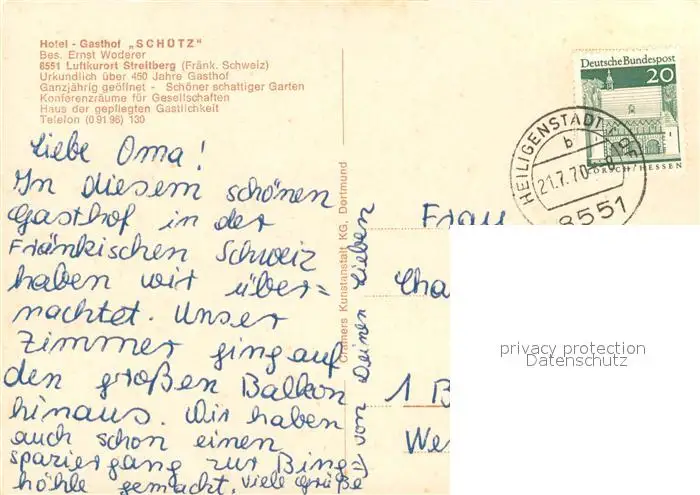 Hotel - Gasthof „SCHÜTZ"
Bes. Ernst Woderer
8551 Luftkurort Streitberg (Fränk. Schweiz)
Urkundlich über 450 Jahre Gasthof
Ganzjährig geöffnet - Schöner schattiger Garten
Konferenzräume für Gesellschaften
Haus der gepflegten Gastlichkeit
Telefon (0 91 96) 130
Liebe Oma!
In diesem schönen
Gasthof in der
Fränkischen Schweiz
haben wir über=
nachtet. Unser
Zimmer ging auf
den großen Balkon
hinaus. Wir haben
auch schon einen
spaziergang zur Bing
höhle gemacht. viele grüße
von Deinen Lieben
Cramers Kunstanstalt KG, Dortmund
Deutsche Bundespost
20
LORSCH/HESSEN
HEILIGENSTADT
b
21.7.70
8551
Frau
Cha
1 B
We
privacy protection
Datenschutz